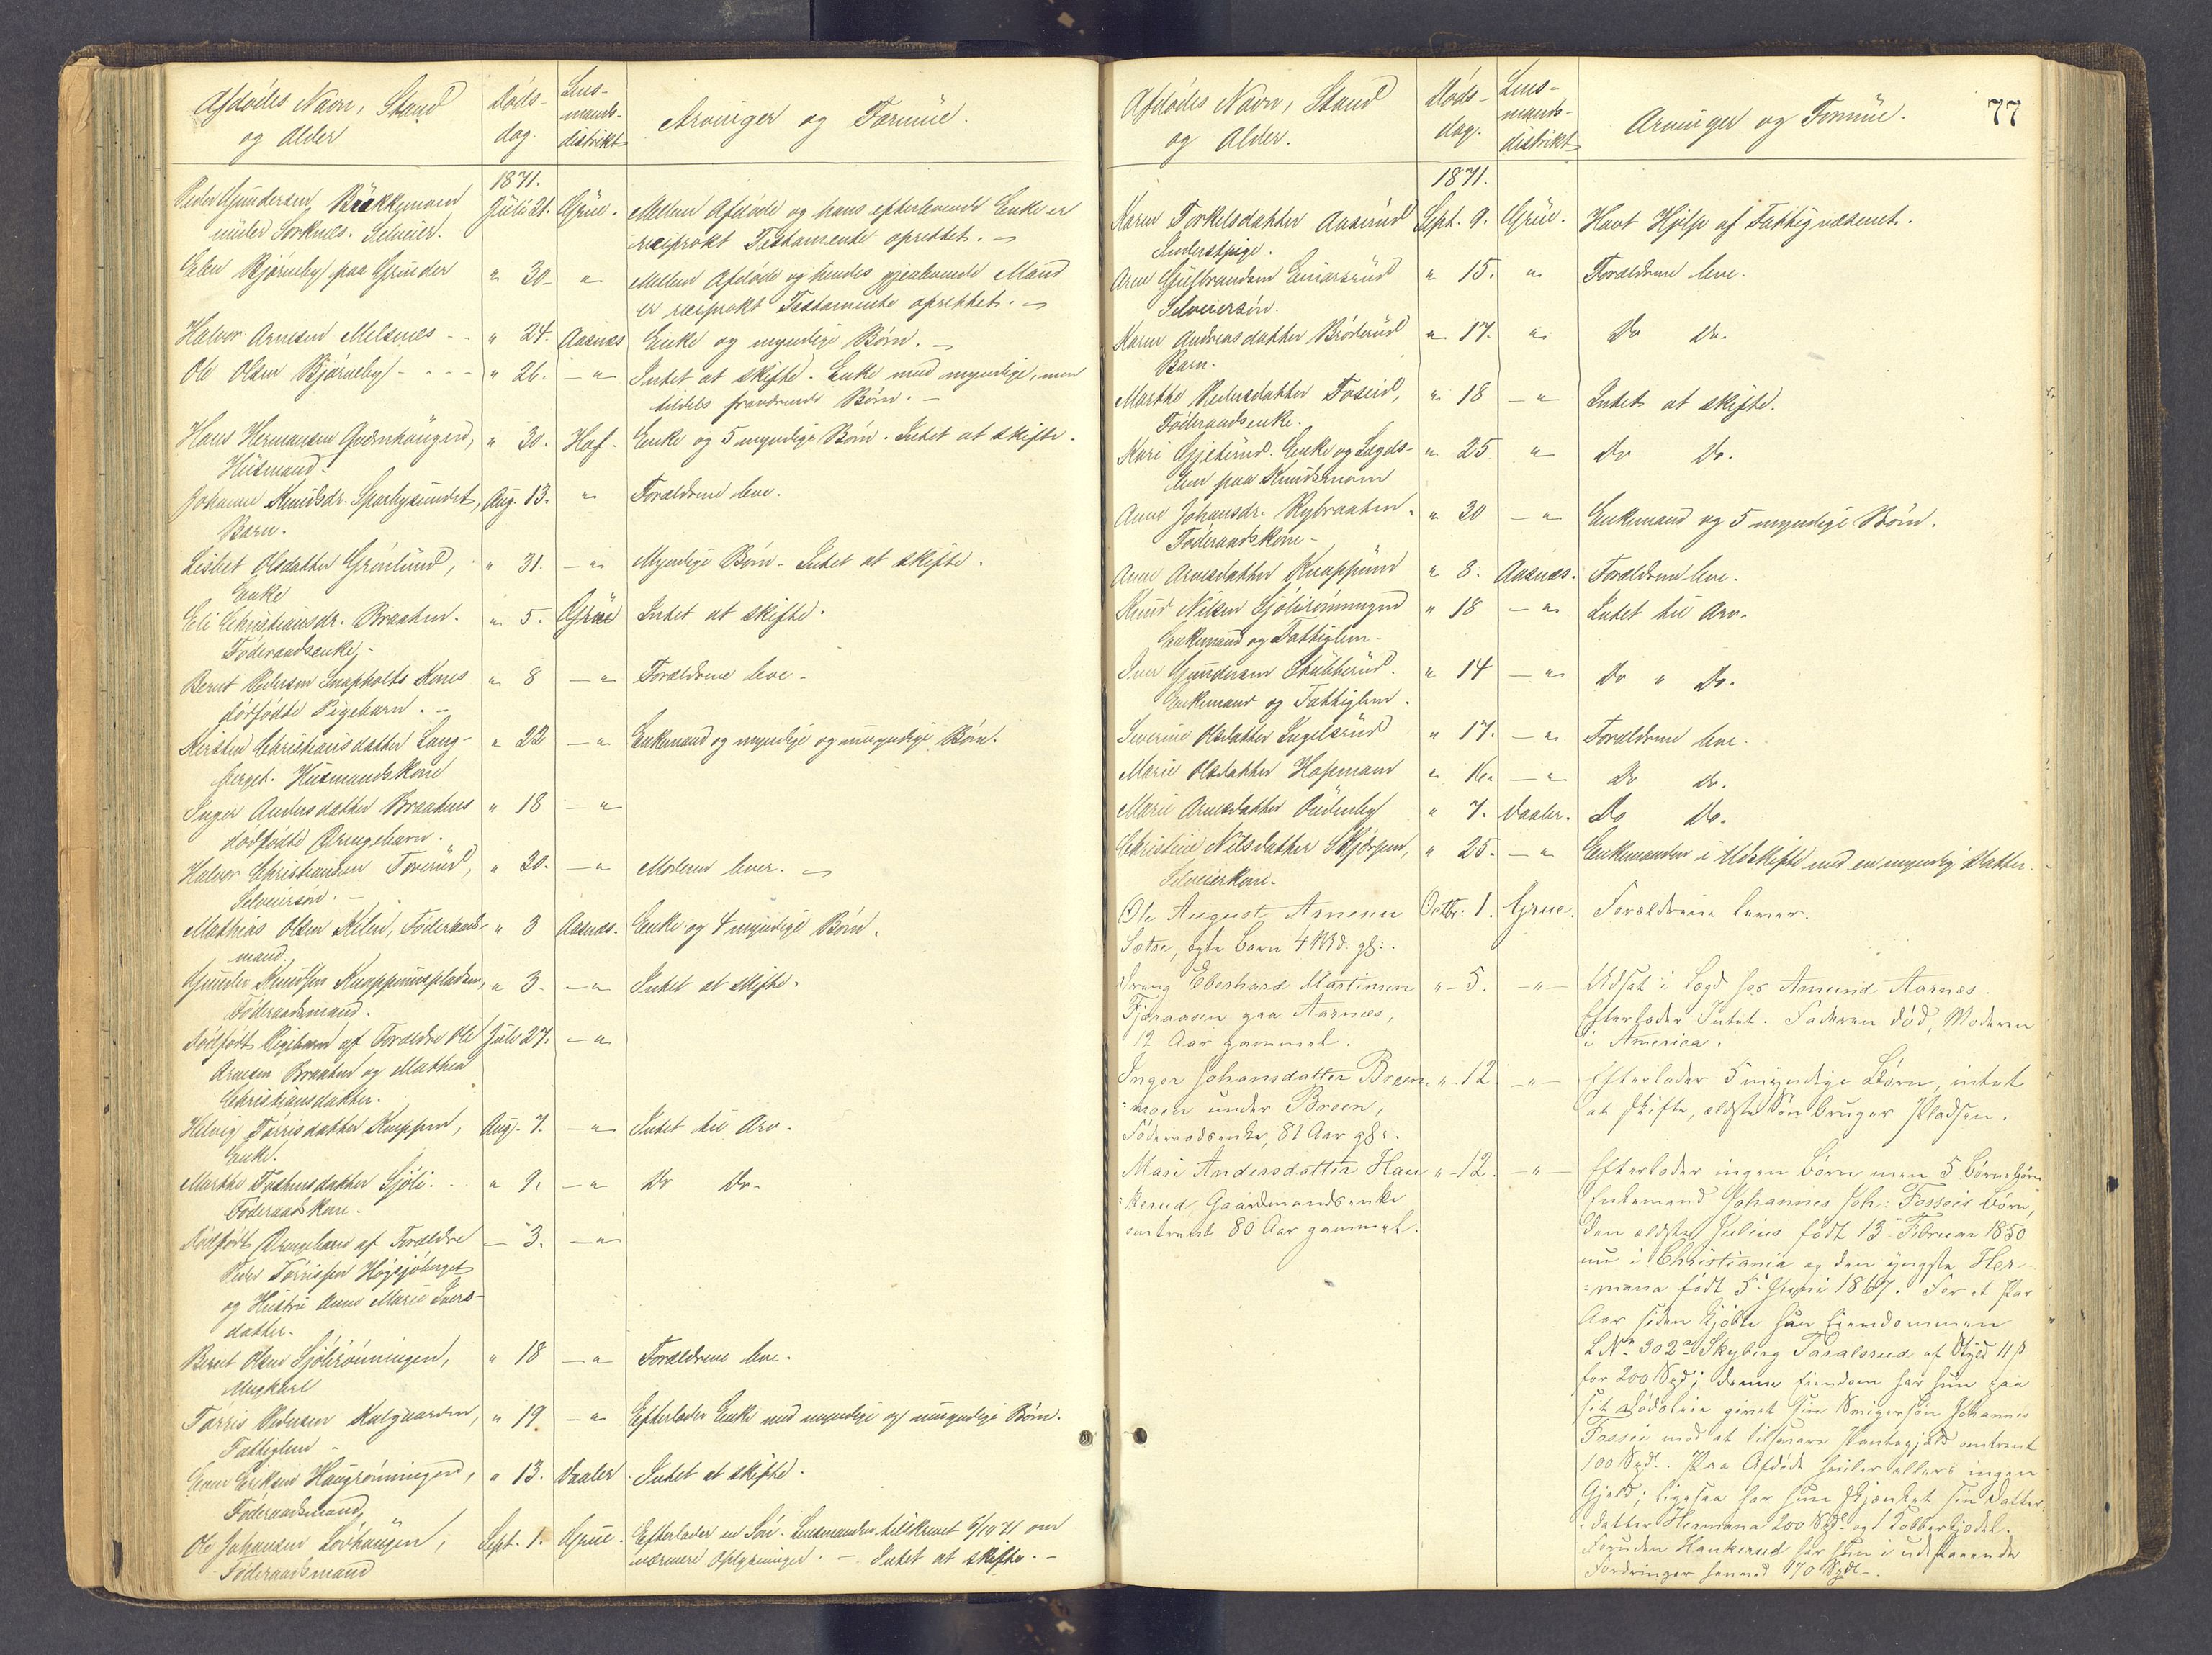 Afdødes Navn, Stand
og Alder
Døds-
dag.
Lens-
mands-
distrikt
Arvinger og Formue.
1871.
Peder Gundersen Bækkemoen Juli 21. Grue. Mellem Afdøde og hans efterlevende Enke er
under Sorknes. Selveier. reciprokt Testamente oprettet. –
Eden Bjørneby paa Grinder " 30 – " Mellem Afdøde og hendes gjenlevende Mand
er reciprokt Testamente oprettet. –
Halvor Arnesen Melsnes - - " 24. Aasnæs Enke og myndige Børn. –
Ole Olsen Bjørneby - - - - " 26. – " Intet at skifte. Enke med myndige, men
tildels fraværende Børn. –
Hans Hermansen Qværnhaugen, " 30. Hof. Enke og 5 myndige Børn. Intet at skifte.
Husmand.
Johanne Knudsdr. Sparbysundet, Aug. 13. " Forældrene leve.
Barn.
Lisbet Olsdatter Grønlund, " 31. – " Myndige Børn – Intet at skifte.
Enke
Eli Christiansdr. Braaten. " 5. Grue Intet at skifte.
Føderaadsenke, -
Bernt Pedersen Snapholts Kones " 8 – " Forældrene leve –
dødfødte Pigebarn. –
Kirsten Christiansdatter Lang- " 22 – " Enkemand og myndige og umyndige Børn.
berget. Husmandskone
Inger Andersdatter Braatens " 18 – "
dødfødte Drengebarn.
Halvor Christiansen Toverud, " 30. – " Moderen lever. –
Selveiersøn. –
Mathias Olsen Kilen, Føderaads- " 3 Aasnæs. Enke og 4 myndige Børn.
mand.
Gunder Knudsen Knappumspladsen, " 3. – " Intet at skifte.
Føderaadsmand.
Dødfødt Pigebarn af Forældre Ole Juli 27. – "
Arnesen Braaten og Mathea
Christiansdatter.
Helvig Tørrisdatter Knappen, Aug. 7. – " Intet til Arv.
Enke.
Marthe Tostensdatter Sjøli. - " 9. – " Do Do.
Føderaadskone.
Dødfødt Drengebarn af Forældre – 3. – "
Peder Tørrissen Høgsjøberget
og Hustru Anne Marie Ivers-
datter.
Bernt Olsen Sjølirønningen, " 18 – " Forældrene leve.
Ungkarl
Tørris Pedersen Kalgaarden, " 19 – " Efterlader Enke med myndige og umyndige Børn.
Fattiglem –
Even Eriksen Haugrønningen, " 13. Vaaler. Intet at skifte.
Føderaadsmand,
Ole Johansen Løvhaugen, Sept. 1. Grue. Efterlader en Søn. Lensmanden tilskrevet 6/10 71 om
Føderaadsmand nærmere Oplysninger. – Intet at skifte. –
Afdødes Navn, Stand
og Alder.
Døds-
dag.
Lens-
mands-
distrikt
Arvinger og Formue.
77
1871.
Karen Torkelsdatter Aaserud Sept. 9. Grue. Havt Hjelp af Fattigvæsenet.
Inderstpige.
Arne Gulbrandsen Einarsrud " 15. " Forældrene leve.
Selveiersøn.
Karen Andreasdatter Brøderud " 17. " Do Do.
Barn.
Marthe Pedersdatter Foseid, " 18 – " Intet at skifte.
Føderaadsenke.
Kari Gjeterud. Enke og Lægds- " 25 " Do Do.
lem paa Knudsmoen
Anne Johansdr. Rybraaten. " 30 – " Enkemand og 5 myndige Børn.
Føderaadskone –
Anne Arnesdatter Knappum " 8. Aasnæs. Forældrene leve.
Knud Nilsen Sjølirønningen " 18 – " Intet til Arv.
Enkemand og Fattiglem –
Iver Gundersen Stubberud. " 14 – " Do " Do.
Enkemand og Fattiglem.
Severine Olsdatter Ingelsrud " 17. – " Forældrene leve.
Marie Olsdatter Hofmoen " 16. – " Do Do.
Marie Arnesdatter Oudenby " 7. Vaaler. Do Do.
Christine Nilsdatter Skjørpen, " 25. – " Enkemanden i Uskifte med en myndig Datter.
Selveierkone.
Ole August Arnesen Octbr: 1. Grue. Forældrene lever.
Sætre, egte Barn 4 Md. gl:.
Dreng Eberhard Martinsen " – 5. – " – Udsat i Lægd hos Amund Aarnæs.
Fjeraasen paa Aarnæs, Efterlader Intet. Faderen død, Moderen
12 Aar gammel. i America.
Inger Johansdatter Breen- " – 12. – " – Efterlader 5 myndige Børn, intet
=moen under Breen, at skifte, ældste Søn bruger Pladsen.
Føderaadsenke, 81 Aar gl:.
Mari Andersdatter Hau " – 12. – " – Efterlader ingen Børn men 5 Børnebørn
=kerud, Gaardmandsenke Enkemand Johannes Joh: Fosseis børn,
omtrent 80 Aar gammel. den ældste Julius født 13 Februar 1850
nu i Christiania og den yngste Her-
=mana født 5 Juni 1867. For et Par
Aar siden kjøbte hun Eiendommen
L No 302a Skyberg Taralsrud af Skyld 11 ß
for 200 Spd; denne Eiendom har hun paa
sit Dødsleie givet sin Svigersøn Johannes
Fossei mod at tilsvare Pantegjæld omtrent
100 Spd. Paa Afdøde hviler ellers ingen
Gjæld; ligesaa har hun skjænket sin Datter-
=datter Hermana 200 Spd og 1 Kobberkjedel.
Foruden Haukerud har hun i udestaaende
Fordringer henved 170 Spd –.